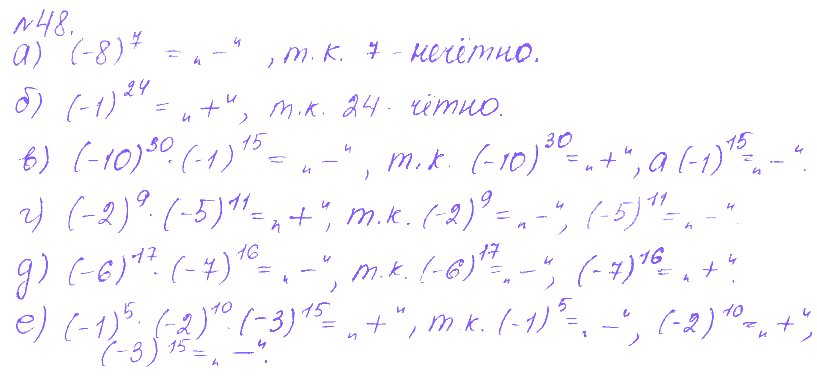 №48.
а) (-8)^7 = „-“, т.к. 7 - нечётно.
б) (-1)^24 = „+“, т.к. 24 - чётно.
в) (-10)^30 · (-1)^15 = „-“, т.к. (-10)^30 = „+“, а (-1)^15 = „-“.
г) (-2)^9 · (-5)^11 = „+“, т.к. (-2)^9 = „-“, (-5)^11 = „-“.
д) (-6)^17 · (-7)^16 = „-“, т.к. (-6)^17 = „-“, (-7)^16 = „+“.
е) (-1)^5 · (-2)^10 · (-3)^15 = „+“, т.к. (-1)^5 = „-“, (-2)^10 = „+“,
(-3)^15 = „-“.